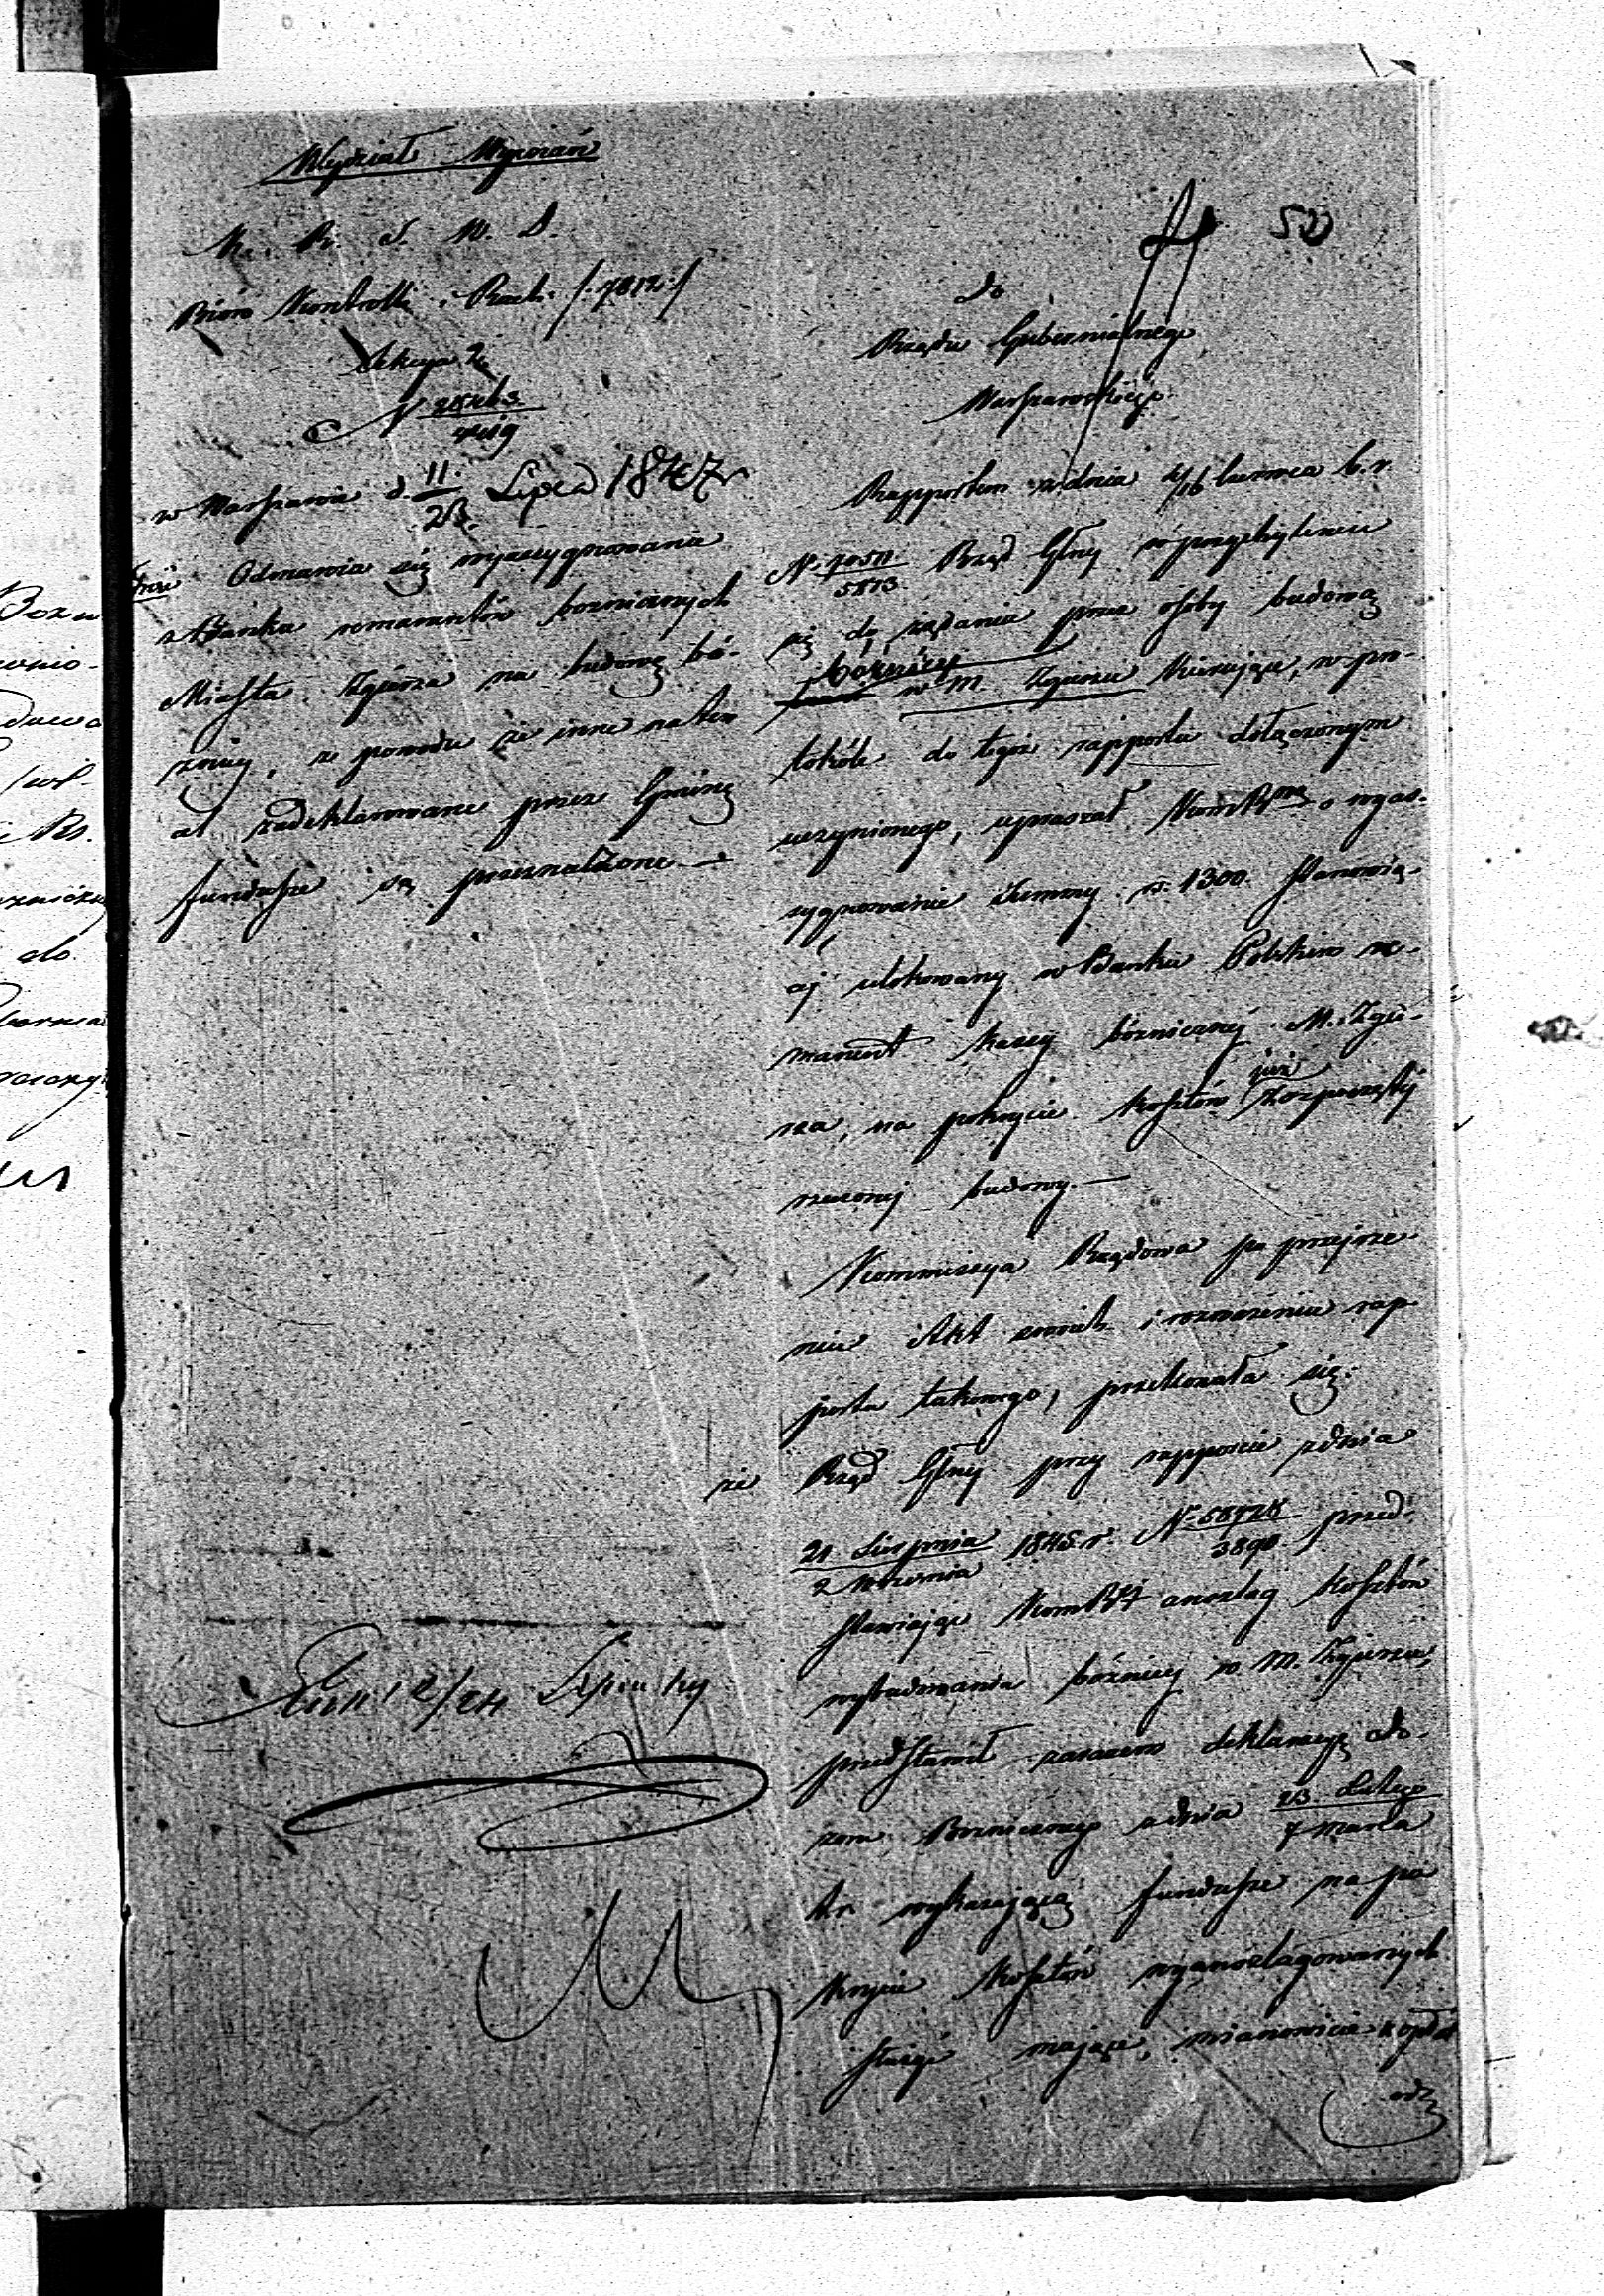 Wydział Wyznań
K. R. S. W. D.
Bióro Kontrolli i Rach: /:7812:/
Sekcya 2
N
w Warszawie d. 11/23 Lipca 1847 r
Treść Odmawia się wyassygnowania
z Banku remanentów bozniczych
Miasta Zgierza na budowę bó-
żnicy, z powodu że inne na ten
cel zadeklarowane przez Gminę
fundusze są przeznaczone —
12/24 Lipca
53
Do
Rządu Gubernialnego
Warszawskiego
Rapportem z dnia 4/16 Czerwca b. r.
N. 5813 Rząd Głny w przychyleniu
się do żądania przez osoby budową
bożnicy w M. Zgierzu kierujące, w pro-
tokóle do tegoż rapportu dołączonym
uczynionego, upraszał KomRną o wyas-
sygnowanie Summy rs. 1300. stanowią-
cej ulokowany w Banku Polskim re-
manent kassy bóżniczej M. Zgie-
rza, na pokrycie kosztów już rozpoczętej
rzeczonej budowy. —
Kommissya Rządowa po przejrze-
niu Akt swoich i rozważeniu rap-
portu takowego, przekonała się:
że Rząd Głny przy rapporcie z dnia
21 Sierpnia/2 Września 1845 r. N. 68728/3890 przed-
stawiając KomRej anszlag kosztów
wybudowania bóżnicy w M. Zgierzu,
przedstawił zarazem deklaracyę Do-
zoru Bożniczego z dnia 23 Lutego/7 Marca
t. r. wykazującą fundusze na po
krycie kosztów wyanszlagowanych
służyć mające, mianowicie z opłat
od